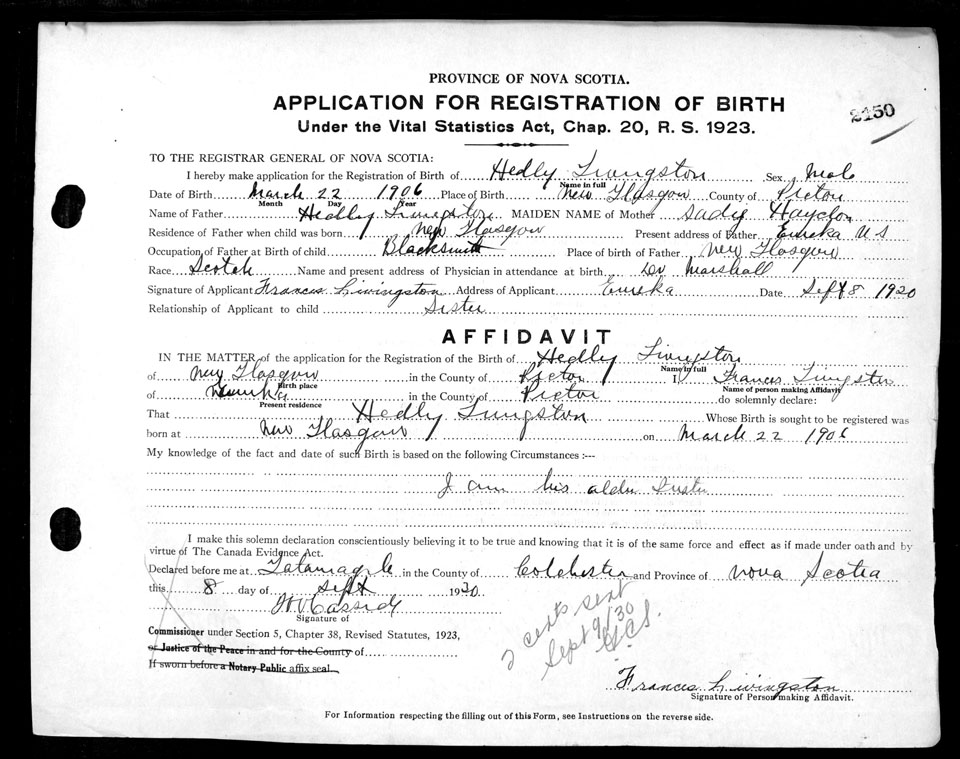 PROVINCE OF NOVA SCOTIA.
APPLICATION FOR REGISTRATION OF BIRTH
2150
Under the Vital Statistics Act, Chap. 20, R. S. 1923.
TO THE REGISTRAR GENERAL OF NOVA SCOTIA:
I hereby make application for the Registration of Birth of Hedly Livingston Sex Male
Name in full
Date of Birth March 22 1906 Place of Birth New Glasgow County of Pictou
Month Day Year
Name of Father Hedley Livingston MAIDEN NAME of Mother Sadie
Residence of Father when child was born New Glasgow Present address of Father Eureka
Occupation of Father at Birth of child Blacksmith Place of birth of Father New Glasgow
Race Scotch Name and present address of Physician in attendance at birth Dr Marshall
Signature of Applicant Frances Livingston Address of Applicant Eureka Date Sept 8 1930
Relationship of Applicant to child Sister
AFFIDAVIT
IN THE MATTER of the application for the Registration of the Birth of Hedley Livingston
Name in full
of New Glasgow in the County of Pictou I Frances Livingston
Birth place Name of person making Affidavit
of Eureka in the County of Pictou do solemnly declare:
Present residence
That Hedley Livingston Whose Birth is sought to be registered was
born at New Glasgow on March 22 1906
My knowledge of the fact and date of such Birth is based on the following Circumstances :---
I am his older sister
I make this solemn declaration conscientiously believing it to be true and knowing that it is of the same force and effect as if made under oath and by
virtue of The Canada Evidence Act.
Declared before me at in the County of Colchester and Province of Nova Scotia
this 8 day of Sept 1930
Cassidy
Signature of
2 cents sent
Sept 9/30
Commissioner under Section 5, Chapter 38, Revised Statutes, 1923,
or Justice of the Peace in and for the County of
If sworn before a Notary Public affix seal.
Frances Livingston
Signature of Person making Affidavit.
For Information respecting the filling out of this Form, see Instructions on the reverse side.